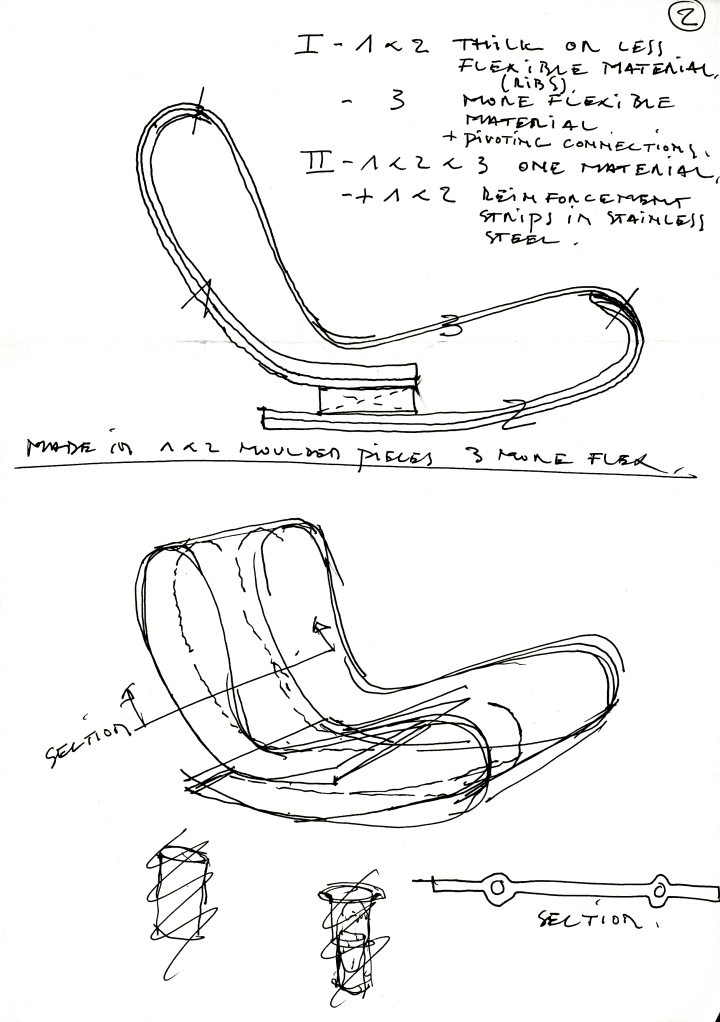 2
I - 1 & 2 THICK OR LESS
FLEXIBLE MATERIAL,
(RIBS).
- 3 MORE FLEXIBLE
MATERIAL.
+ PIVOTING CONNECTIONS.
II - 1 & 2 & 3 ONE MATERIAL,
- + 1 & 2 REINFORCEMENT
STRIPS IN STAINLESS
STEEL.
1
3
2
MADE IN 1 & 2 MOULDED PIECES 3 MORE FLEX.
SECTION
SECTION.